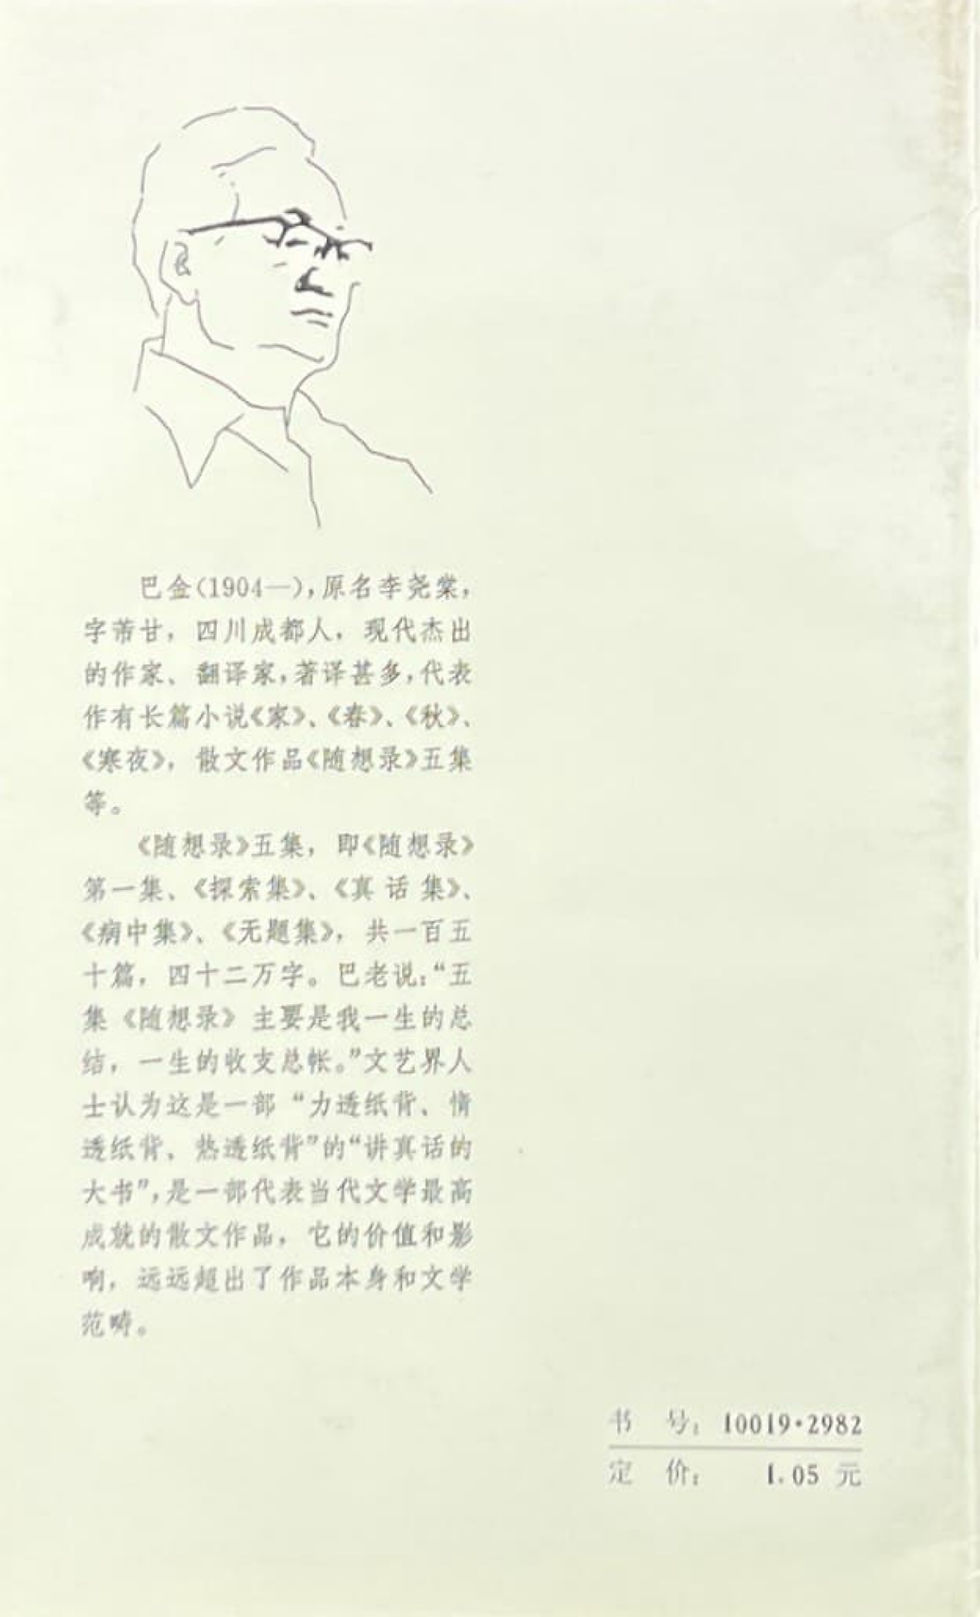 巴金(1904—),原名李尧棠,
字芾甘,四川成都人,现代杰出
的作家、翻译家,著译甚多,代表
作有长篇小说《家》、《春》、《秋》、
《寒夜》,散文作品《随想录》五集
等。
《随想录》五集,即《随想录》
第一集、《探索集》、《真话集》、
《病中集》、《无题集》,共一百五
十篇,四十二万字。巴老说:“五
集《随想录》主要是我一生的总
结,一生的收支总帐。”文艺界人
士认为这是一部“力透纸背、情
透纸背、热透纸背”的“讲真话的
大书”,是一部代表当代文学最高
成就的散文作品,它的价值和影
响,远远超出了作品本身和文学
范畴。
书 号:10019·2982
定 价: 1.05 元